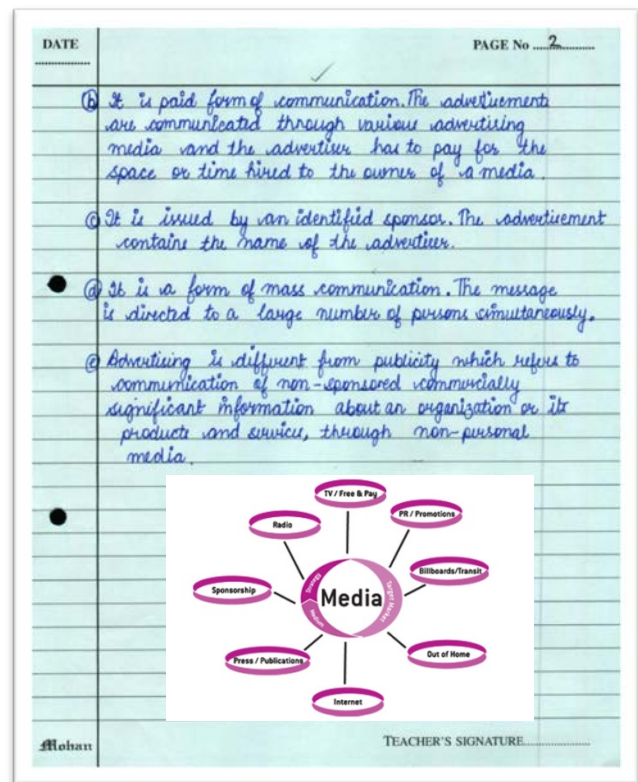 DATE
PAGE No 2
(b) It is paid form of communication. The advertisements
are communicated through various advertising
media and the advertiser has to pay for the
space or time hired to the owner of a media.
(c) It is issued by an identified sponsor. The advertisement
contains the name of the advertiser.
(d) It is a form of mass communication. The message
is directed to a large number of persons simultaneously.
(e) Advertising is different from publicity which refers to
communication of non-sponsored commercially
significant information about an organization or its
products and services, through non-personal
media.
TV / Free & Pay
Radio
PR / Promotions
Sponsorship
Strategy
Media
Target Market
Medium
Billboards/Transit
Press / Publications
Out of Home
Internet
Mohan
TEACHER'S SIGNATURE